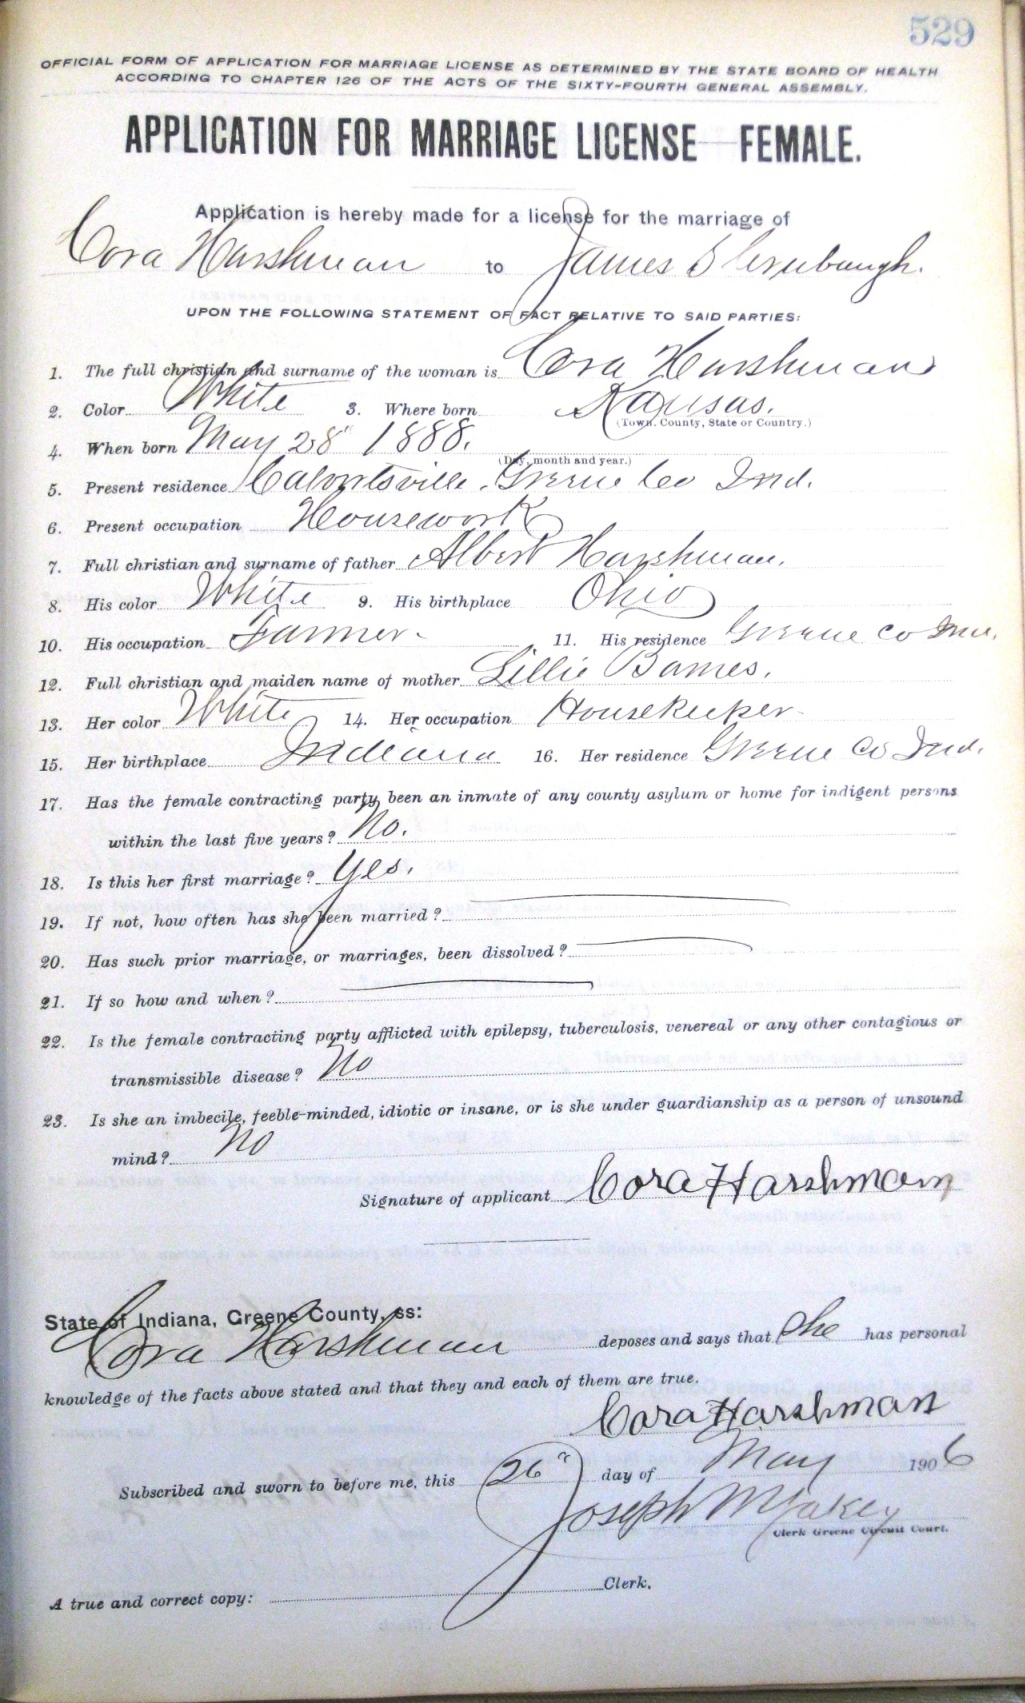 529
OFFICIAL FORM OF APPLICATION FOR MARRIAGE LICENSE AS DETERMINED BY THE STATE BOARD OF HEALTH
ACCORDING TO CHAPTER 126 OF THE ACTS OF THE SIXTY-FOURTH GENERAL ASSEMBLY.
APPLICATION FOR MARRIAGE LICENSE FEMALE.
Application is hereby made for a license for the marriage of
Cora Harshman to James
UPON THE FOLLOWING STATEMENT OF FACT RELATIVE TO SAID PARTIES:
1. The full christian and surname of the woman is Cora Harshman
2. Color White 3. Where born Kansas.
(Town, County, State or Country.)
4. When born May 28" 1888.
(Day, month and year.)
5. Present residence Greene Co Ind.
6. Present occupation Housework
7. Full christian and surname of father Albert Harshman.
8. His color White 9. His birthplace Ohio
10. His occupation Farmer. 11. His residence Greene Co Ind.
12. Full christian and maiden name of mother Lillie
13. Her color White 14. Her occupation Housekeeper
15. Her birthplace Indiana 16. Her residence Greene Co Ind.
17. Has the female contracting party been an inmate of any county asylum or home for indigent persons
within the last five years? No.
18. Is this her first marriage? Yes.
19. If not, how often has she been married?
20. Has such prior marriage, or marriages, been dissolved?
21. If so how and when?
22. Is the female contracting party afflicted with epilepsy, tuberculosis, venereal or any other contagious or
transmissible disease? No
23. Is she an imbecile, feeble-minded, idiotic or insane, or is she under guardianship as a person of unsound
mind? No
Signature of applicant Cora Harshman
State of Indiana, Greene County, ss:
Cora Harshman deposes and says that She has personal
knowledge of the facts above stated and that they and each of them are true.
Cora Harshman
Subscribed and sworn to before me, this 26" day of May 1906
Joseph
Clerk Greene Circuit Court.
A true and correct copy: Clerk.